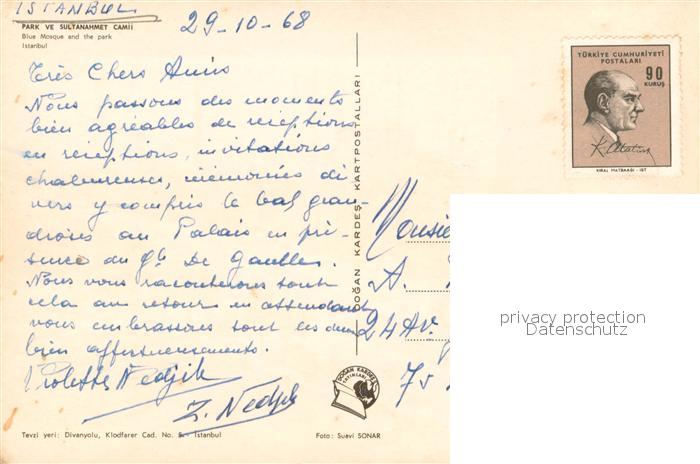 ISTANBUL
29-10-68
PARK VE SULTANAHMET CAMİİ
Blue Mosque and the park
Istanbul
Très Chers Amis
Nous passons des moments
bien agréables de réceptions
en réceptions, invitations
chaleureuses, cérémonies di
vers y compris le bal gran-
dioses au Palais en pré-
sence du Gl. De Gaulle.
Nous vous raconterons tout
cela au retour en attendant
vous embrassons tout les deux
bien affectueusement.
Violette Nedjib
Z. Nedjib
Tevzi yeri: Divanyolu, Klodfarer Cad. No. 5 - Istanbul
DOĞAN KARDEŞ KARTPOSTALLARI
DOĞAN KARDEŞ
YAYINLARI
Foto: Suavi SONAR
TÜRKİYE CUMHURİYETİ
POSTALARI
90
KURUŞ
K. Atatürk
KIRAL MATBAASI - IST
Monsie
A.
24 Av.
75
privacy protection
Datenschutz